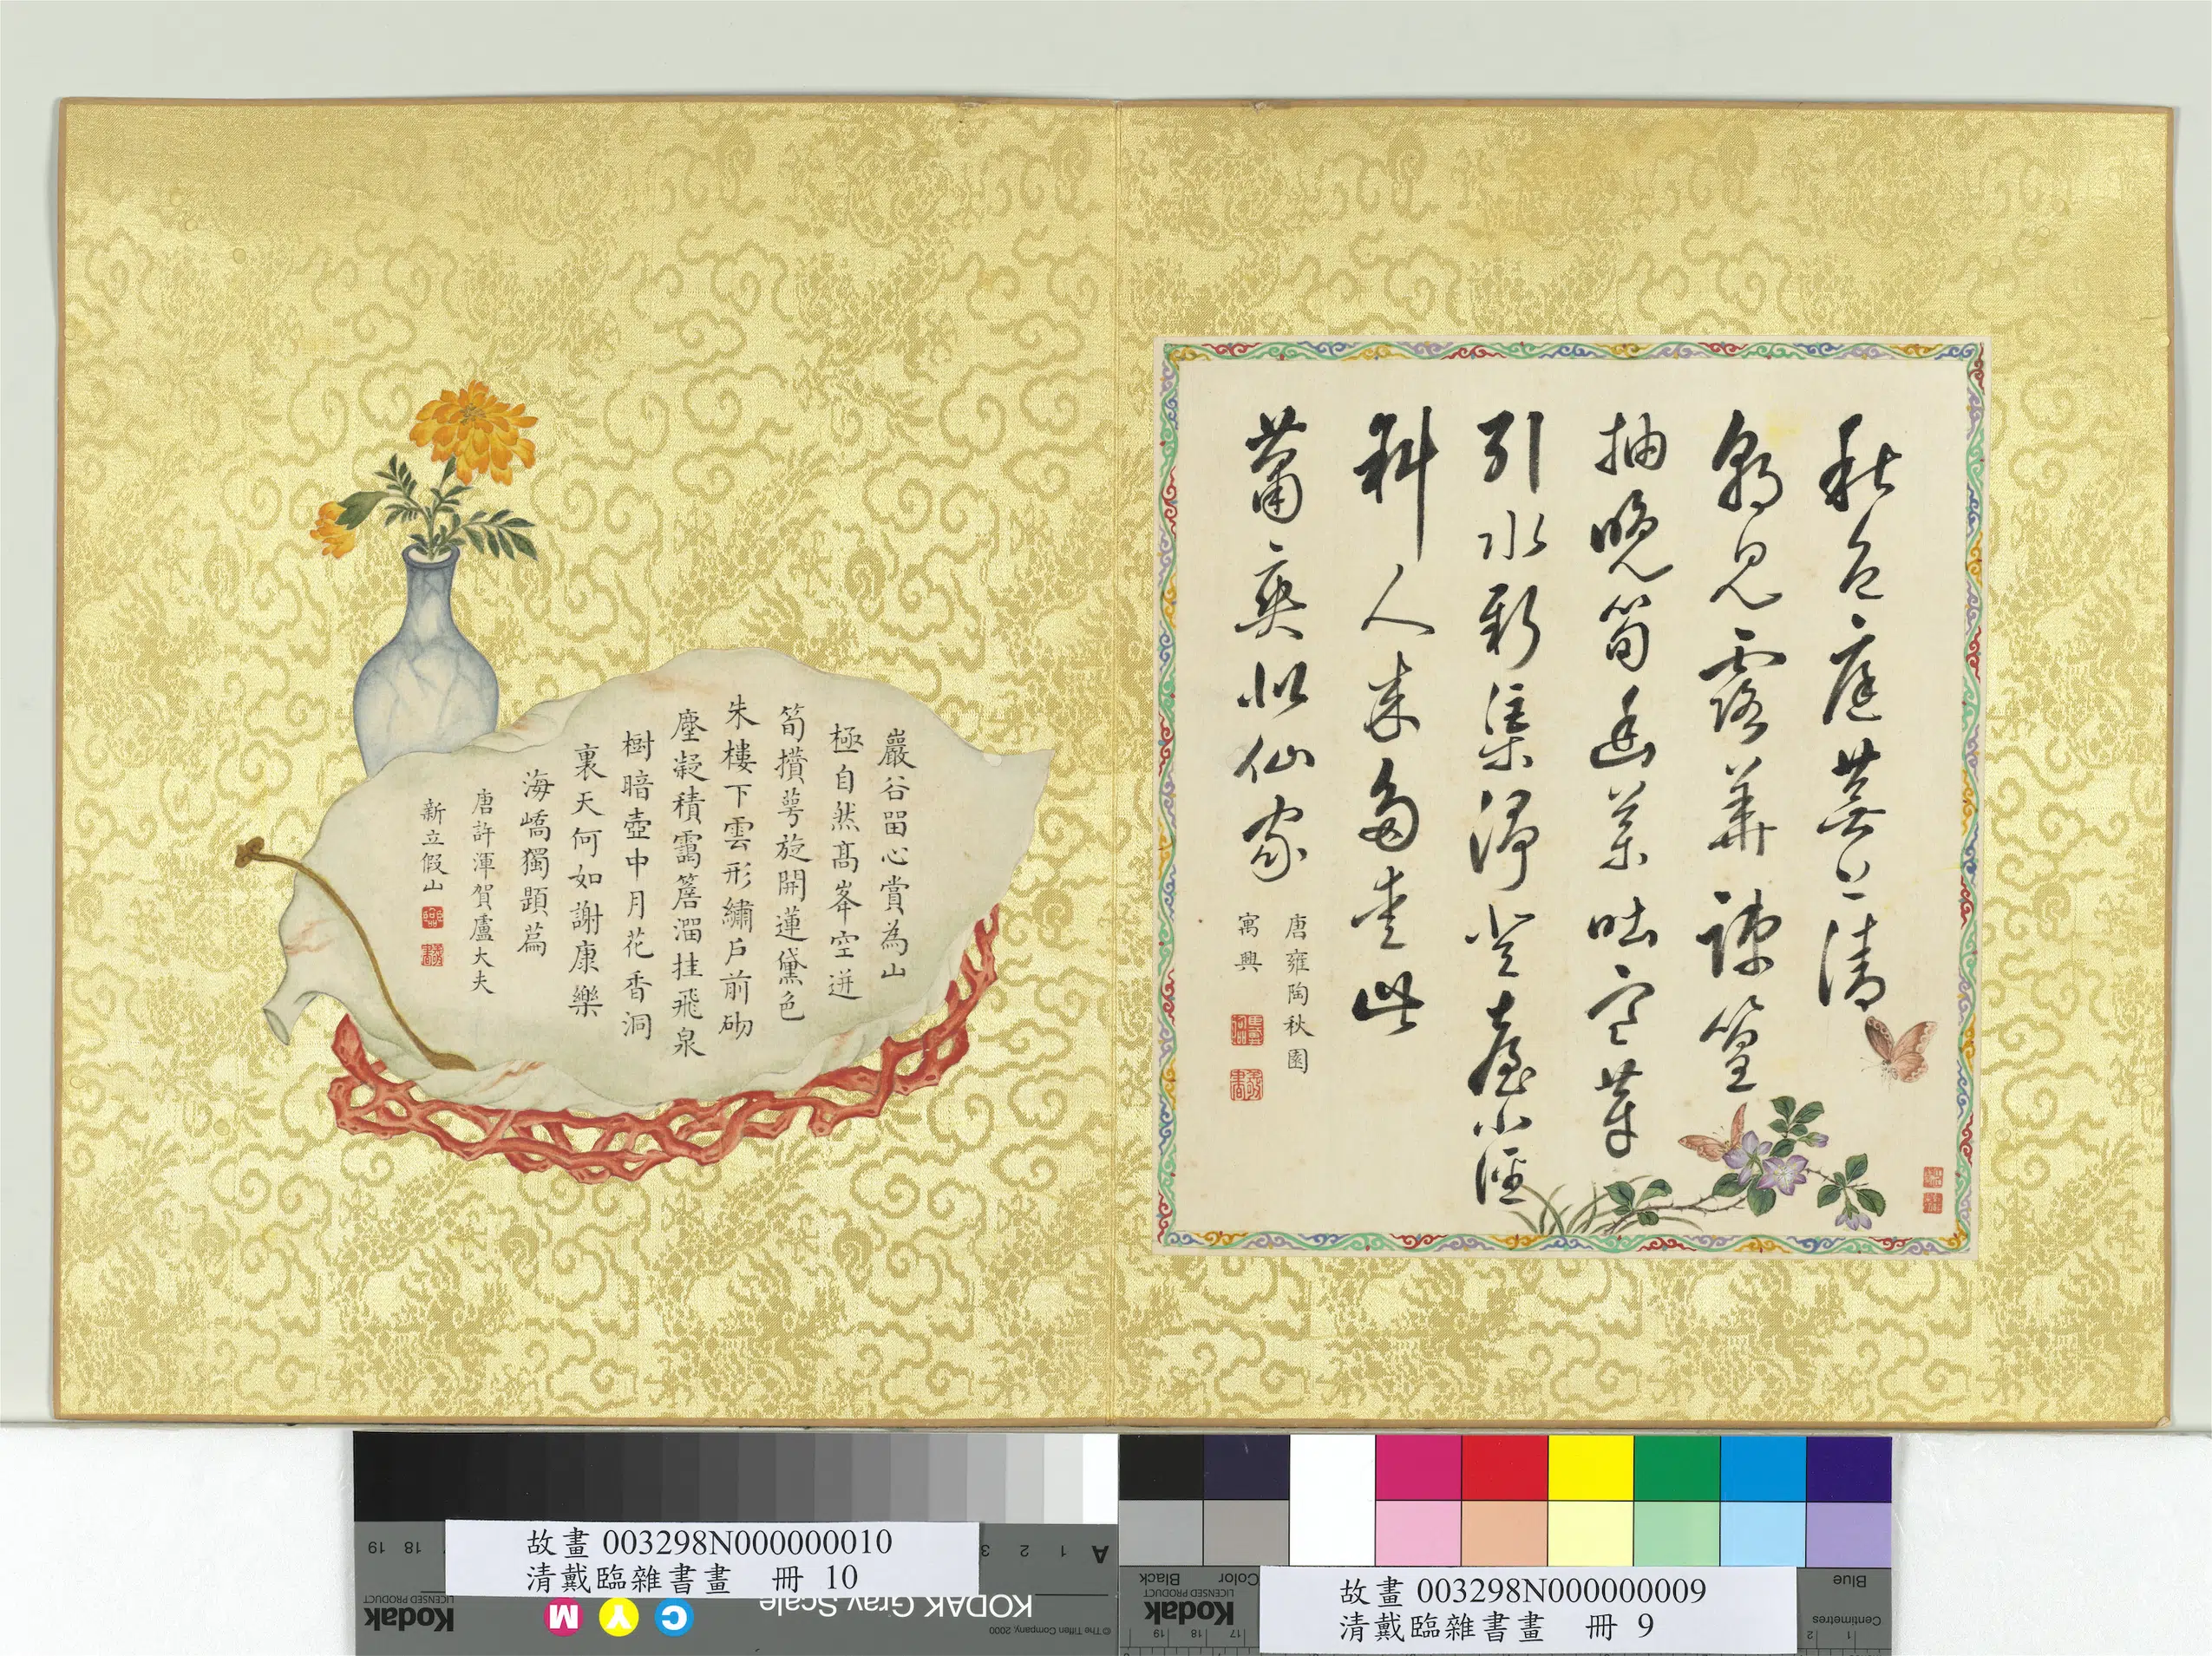 秋色庭蕪上清
朝見露華疎篁
抽晚筍幽藥吐寒芽
引水新渠淨登臺小徑
斜人來多愛此
蕭爽似仙家
唐雍陶秋園
寓興
巖谷畱心賞為山
極自然髙峯空迸
筍攢萼旋開蓮黛色
朱樓下雲形繡戶前砌
塵凝積靄簷溜挂飛泉
樹暗壺中月花香洞
裏天何如謝康樂
海嶠獨題篇
唐許渾賀盧大夫
新立假山
故畫 003298N000000010
清戴臨雜書畫 冊 10
故畫 003298N000000009
清戴臨雜書畫 冊 9
KODAK Gray Scale
Kodak
LICENSED PRODUCT
A 1 2 3
18 19
C Y M
© The Tiffen Company, 2000
Kodak
LICENSED PRODUCT
Color Black
Blue
Centimetres
1 2
17 18 19